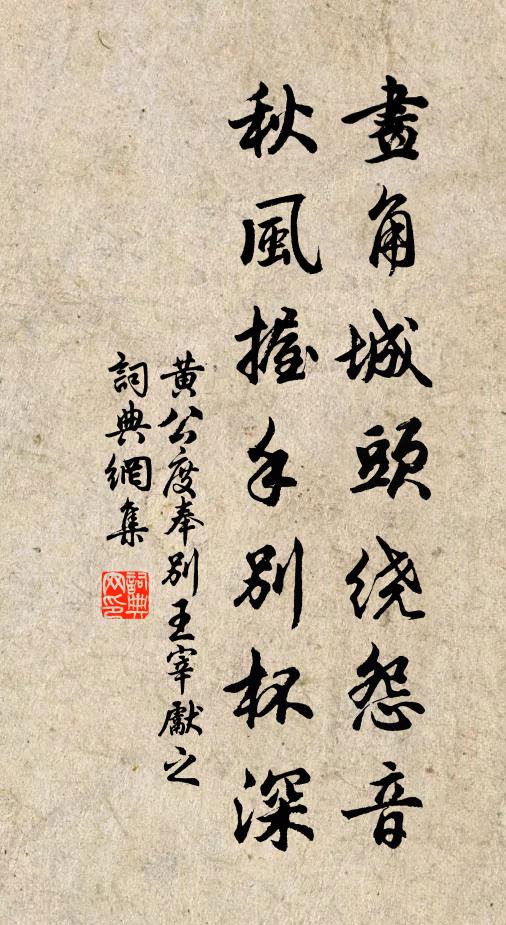 畫角城頭繞怨音
秋風握手別杯深
黃公度奉別王宰獻之
詞典網集
詞典網印